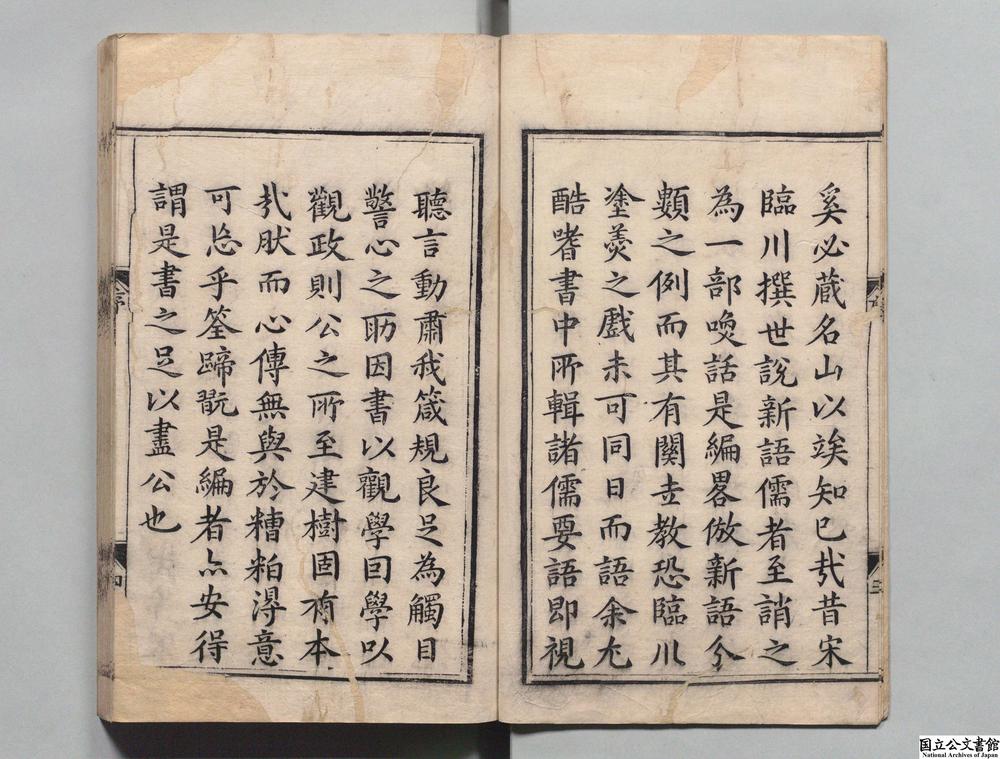 奚必蔵名山以竢知已㢤昔宋
臨川撰世說新語儒者至誚之
為一部喚話是編畧倣新語分
䫫之例而其有關世教恐臨川
塗羮之戲未可同日而語余尤
酷嗜書中所輯諸儒要語即視
聽言動肅我箴規良足為觸目
警心之助因書以觀學因學以
觀政則公之所至建樹固有本
㢤肰而心傳無與於糟粕淂意
可忘乎筌蹄翫是編者亦安得
謂是書之足以盡公也
序
三
四
国立公文書館
National Archives of Japan